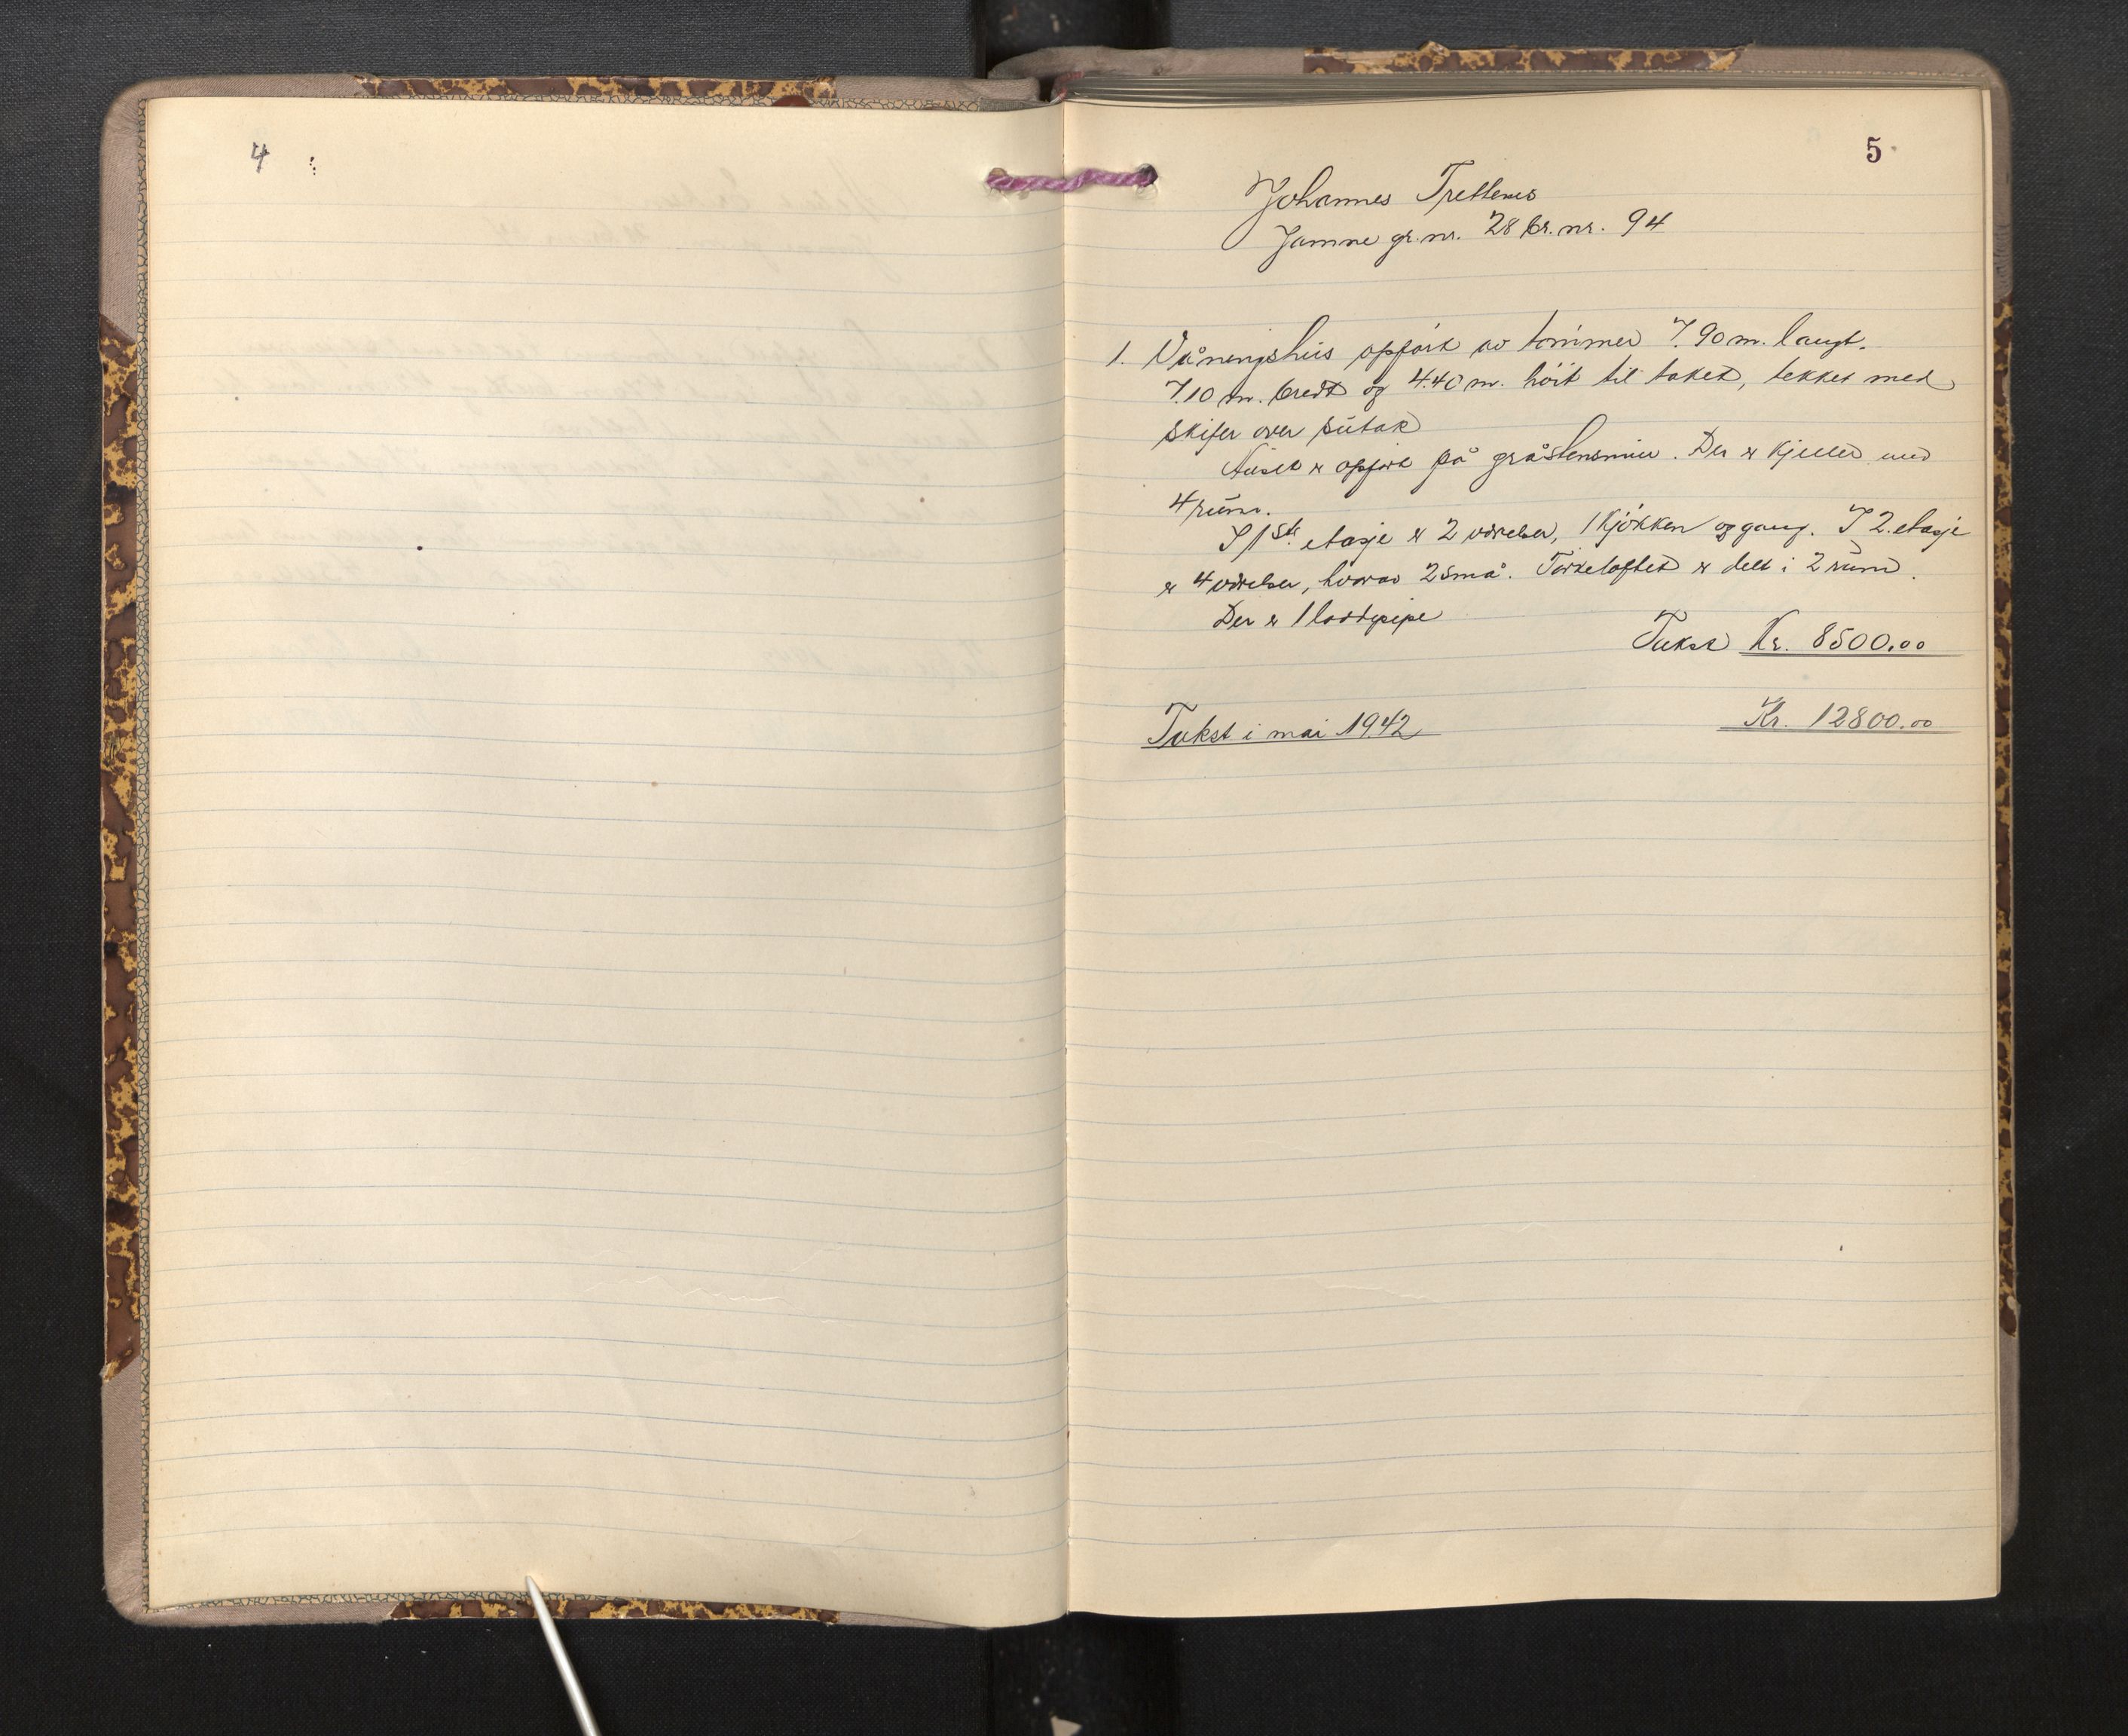 4
5
Johannes Trettenes
Jamne gr.nr. 28 br.nr. 94
1. Våningshus opført av tømmer 7.90 m. langt.
7.10 m. bredt og 4.40 m. høit til taket, tekket med
skifer over sutak
Huset er opført på gråstensmur. Der er kjeller med
4 rum.
I 1ste etasje er 2 værelser, 1 kjøkken og gang. I 2. etasje
er 4 værelser, hvorav 2 små. Tørkeloftet er delt i 2 rum.
Der er 1 luftpipe
Takst Kr. 8500.00
Takst i mai 1942 Kr. 12800.00